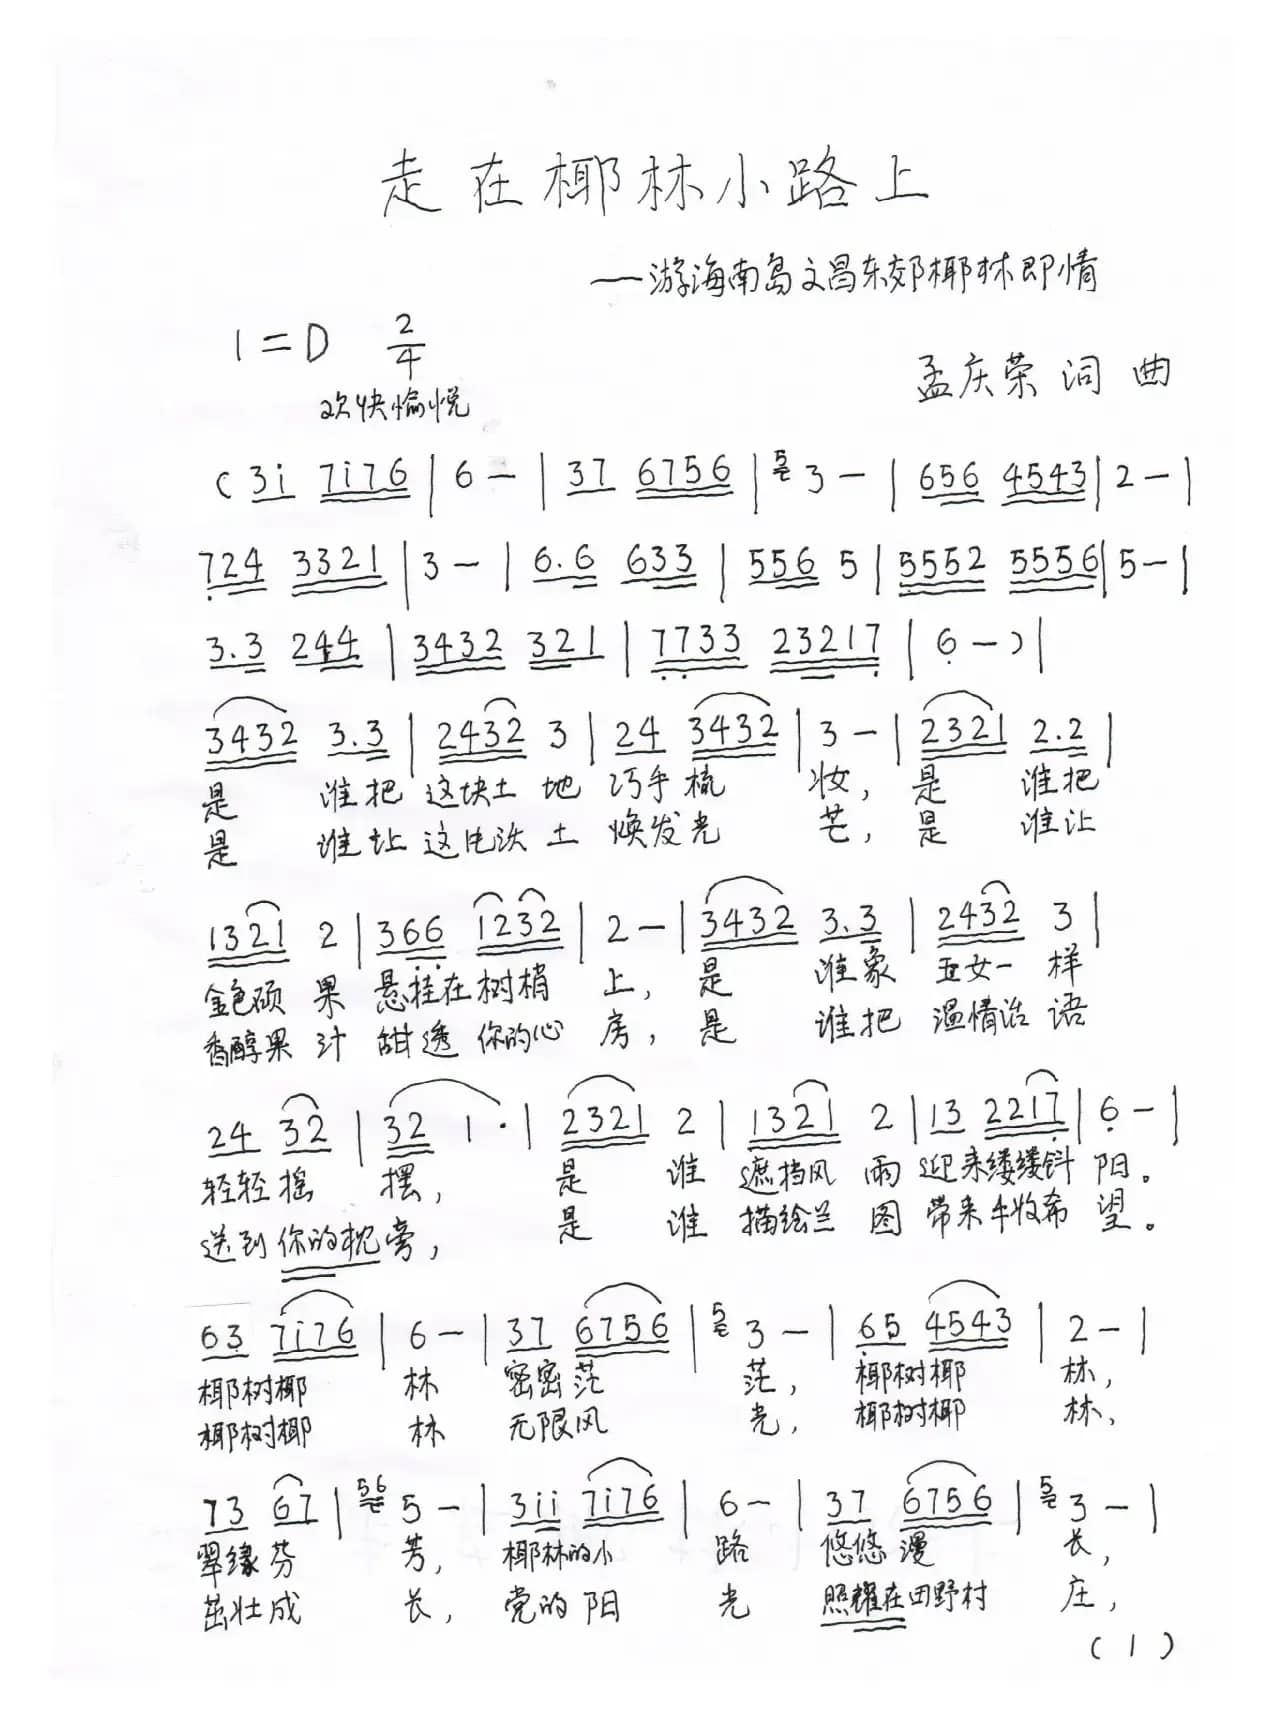 走在椰林小路上
——游海南岛文昌东郊椰林即情
1=D 2/4
孟庆荣 词 曲
欢快愉悦
( 3i 7i76 | 6 — | 37 6756 | 5 3 — | 656 4543 | 2 — |
724 3321 | 3 — | 6.6 633 | 556 5 | 5552 5556 | 5 — |
3.3 244 | 3432 321 | 7733 23217 | 6 — ) |
3432 3.3 | 2432 3 | 24 3432 | 3 — | 2321 2.2 |
是 谁把 这块土 地 巧手梳 妆, 是 谁把
是 谁让 这 土 焕发光 芒, 是 谁让
1321 2 | 366 1232 | 2 — | 3432 3.3 | 2432 3 |
金色硕 果 悬挂在树梢 上, 是 谁象 女一 样
香醇果 汁 甜透 你的心 房, 是 谁把 温情 语
24 32 | 32 1 · | 2321 2 | 1321 2 | 13 2217 | 6 — |
轻轻摇 摆, 是 谁 遮挡风 雨 迎来缕缕斜 阳。
送到你的枕旁, 是 谁 描绘兰 图 带来丰收希 望。
63 7i76 | 6 — | 37 6756 | 5 3 — | 65 4543 | 2 — |
椰树椰 林 密密茫 茫, 椰树椰 林,
椰树椰 林 无限风 光, 椰树椰 林,
73 67 | 56 5 — | 3ii 7i76 | 6 — | 37 6756 | 5 3 — |
翠缘芬 芳, 椰林的小 路 悠悠漫 长,
茁壮成 长, 党的阳 光 照耀在田野村 庄,
(1)